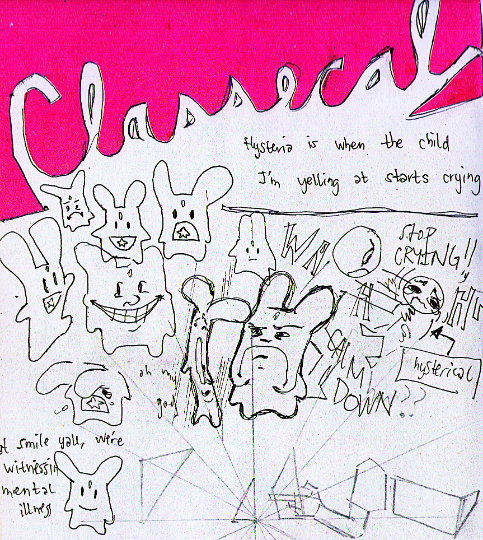 Classical
Hysteria is when the child
I'm yelling at starts crying
STOP
CRYING!!
WA
hysterical
CALM
DOWN??
oh my
god
t smile yall, were
witnessin
mental
illness